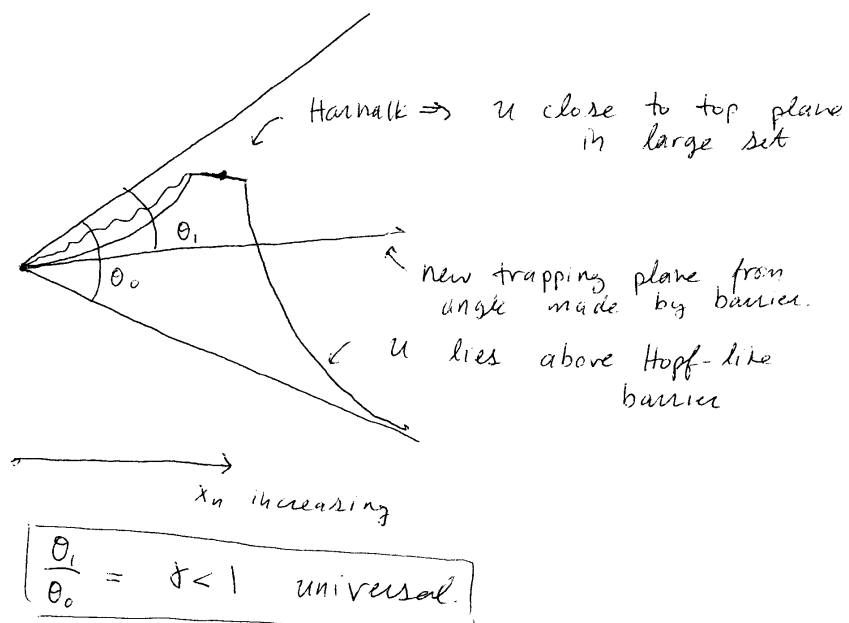 Harnack ⇒ u close to top plane
in large set
θ₁
θ₀
new trapping plane from
angle made by barrier.
u lies above Hopf-like
barrier
xₙ increasing
θ₁/θ₀ = γ < 1 universal.